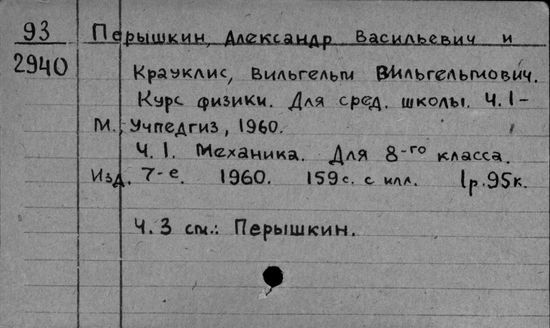 93 Перышкин, Александр Васильевич и
2940 Крауклис, Вильгельм Вильгельмович.
Курс физики. Для сред. школы. Ч. 1-
М., Учпедгиз, 1960.
Ч. 1. Механика. Для 8-го класса.
Изд. 7-е. 1960. 159 с. с илл. 1р. 95к.
Ч. 3 см.: Перышкин.